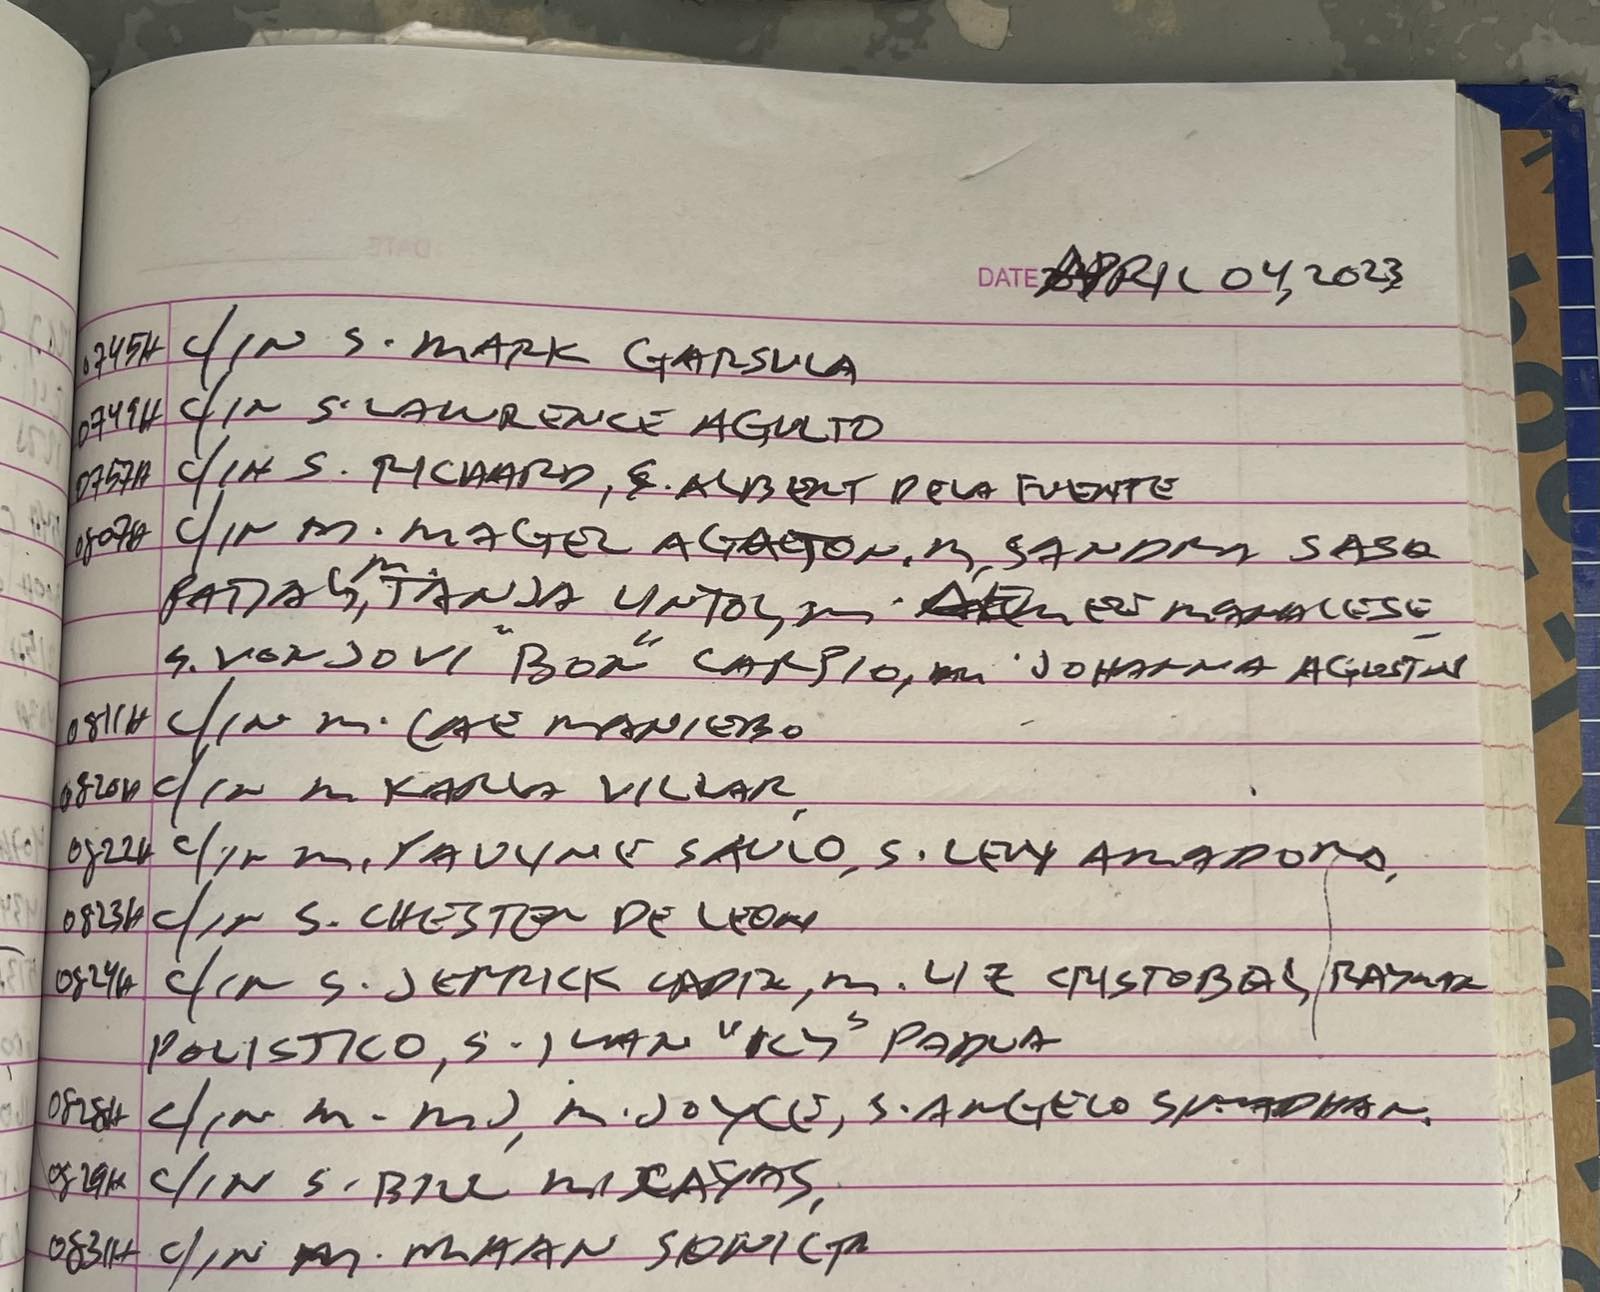 DATE APRIL 04, 2023
0745H C/IN S. MARK GARSULA
0749H C/IN S. LAWRENCE AGULTO
0757H C/IN S. RICHARD, S. ALBERT DELA FUENTE
0807H C/IN M. MAGEL AGATON, M. SANDRA
M. TANJA UNTOL, M. MANALESE
S. VON JOVI "BON" CARPIO, M. JOHANNA AGUSTIN
0811H C/IN M. CAE MANIEBO
0820H C/IN M KARLA VILLAR,
0822H C/IN M. SAULO, S. LEVY AMADORO,
0823H C/IN S. CHESTER DE LEON
0824H C/IN S. JERRICK CADIZ, M. LIZ CRISTOBAL,
POLISTICO, S. JUAN PADUA
0828H C/IN M. MJ, M. JOYCE, S. ANGELO
0829H C/IN S. BILL MISCAYAS,
0831H C/IN M. MHAN